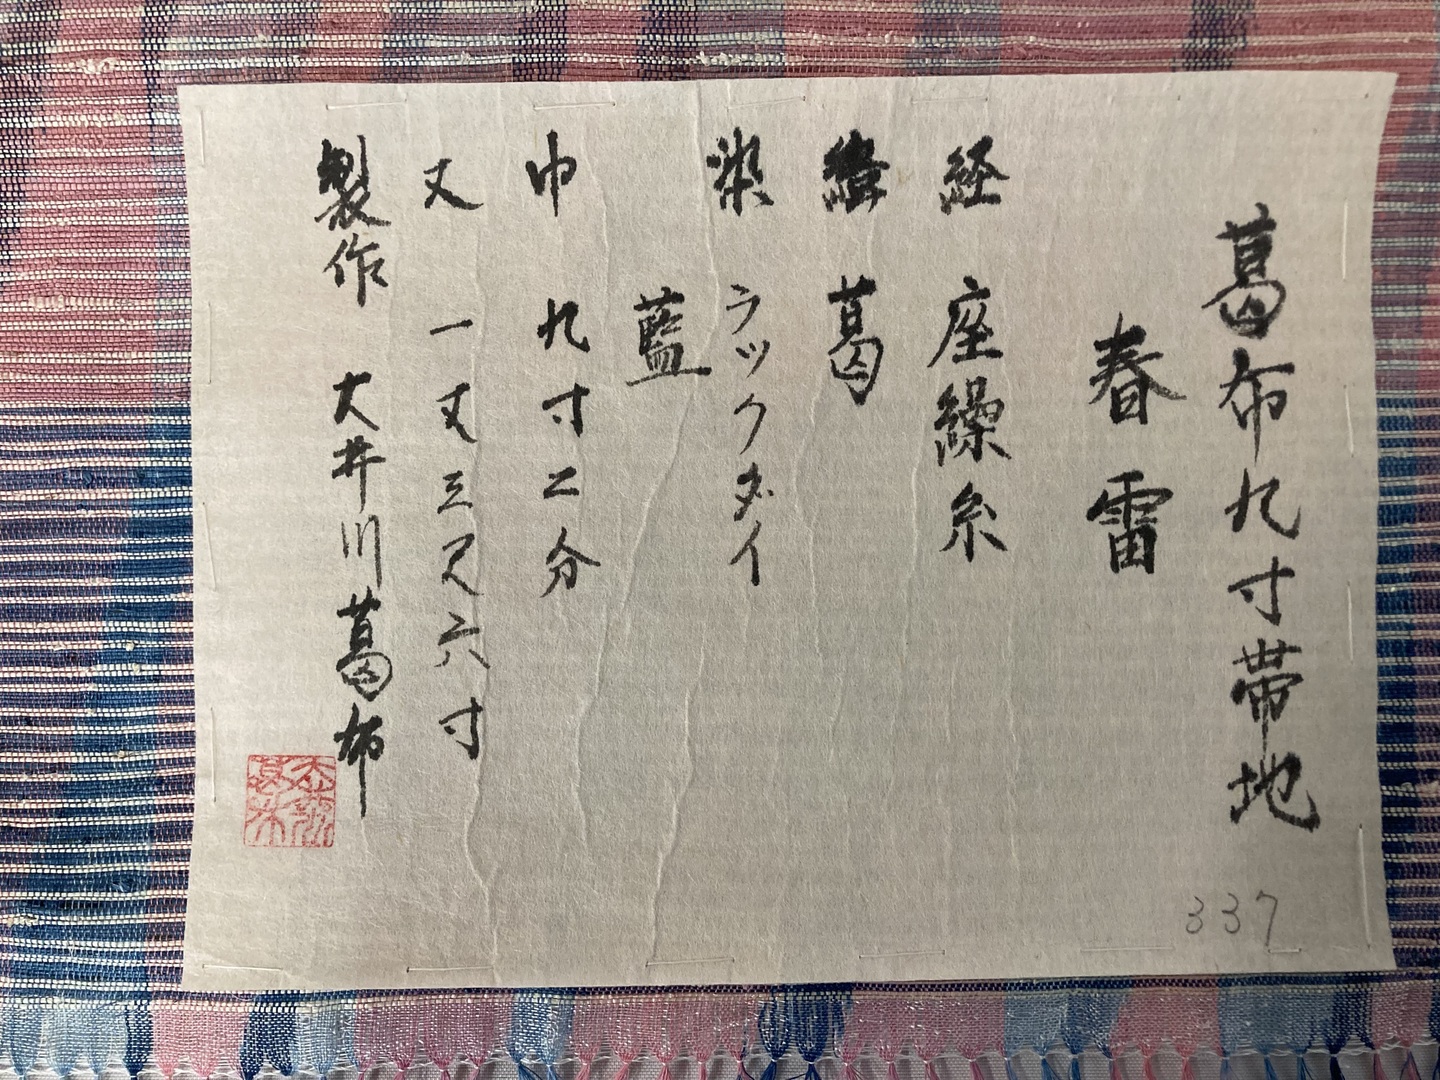 葛布九寸帯地
春雷
経 座繰糸
緯 葛
染 ラックダイ
藍
巾 九寸二分
丈 一丈三尺六寸
製作 大井川葛布
337